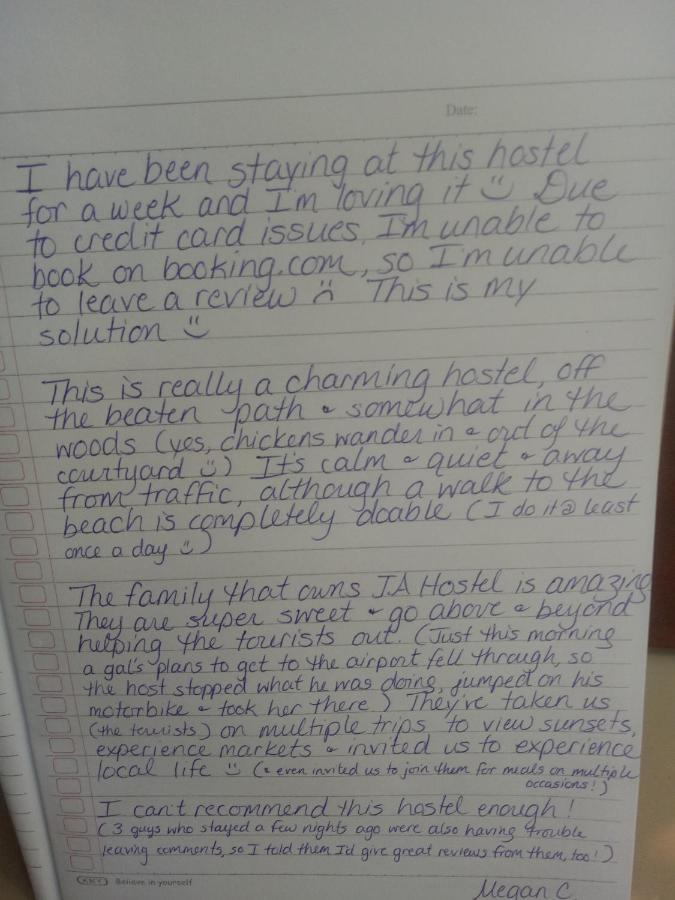 Date:
I have been staying at this hostel
for a week and I'm loving it :) Due
to credit card issues, I'm unable to
book on booking.com, so I'm unable
to leave a review :( This is my
solution :)
This is really a charming hostel, off
the beaten path & somewhat in the
woods (yes, chickens wander in & out of the
courtyard :)) It's calm & quiet & away
from traffic, although a walk to the
beach is completely doable (I do it @ least
once a day :))
The family that owns JA Hostel is amazing
They are super sweet & go above & beyond
helping the tourists out. (Just this morning
a gal's plans to get to the airport fell through, so
the host stopped what he was doing, jumped on his
motorbike & took her there.) They've taken us
(the tourists) on multiple trips to view sunsets,
experience markets & invited us to experience
local life :) (& even invited us to join them for meals on multiple
occasions!)
I can't recommend this hostel enough!
(3 guys who stayed a few nights ago were also having trouble
leaving comments, so I told them I'd give great reviews from them, too!)
KKY Believe in yourself
Megan C.